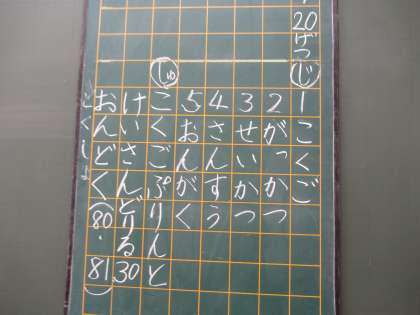 20げつ
じ
1こくご
2がっかつ
3せいかつ
4さんすう
5おんがく
しゅ
こくごぷりんと
けいさんどりる30
おんどく(80・81)
どくしょ